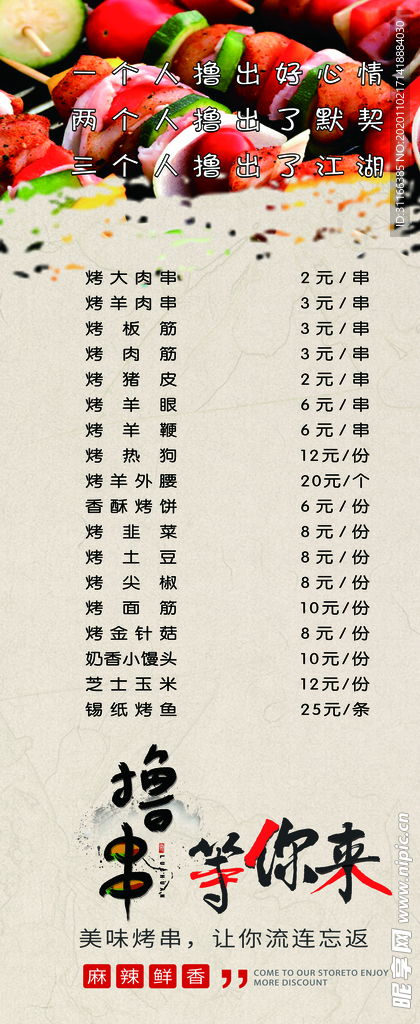 一个人撸出好心情
两个人撸出了默契
三个人撸出了江湖
烤大肉串 2元/串
烤羊肉串 3元/串
烤板筋 3元/串
烤肉筋 3元/串
烤猪皮 2元/串
烤羊眼 6元/串
烤羊鞭 6元/串
烤热狗 12元/份
烤羊外腰 20元/个
香酥烤饼 6元/份
烤韭菜 8元/份
烤土豆 8元/份
烤尖椒 8元/份
烤面筋 10元/份
烤金针菇 8元/份
奶香小馒头 10元/份
芝士玉米 12元/份
锡纸烤鱼 25元/条
撸串
等你来
美味烤串，让你流连忘返
麻辣鲜香
COME TO OUR STORETO ENJOY
MORE DISCOUNT
ID:31166385 NO:20201102171418884030
昵享网 www.nipic.cn